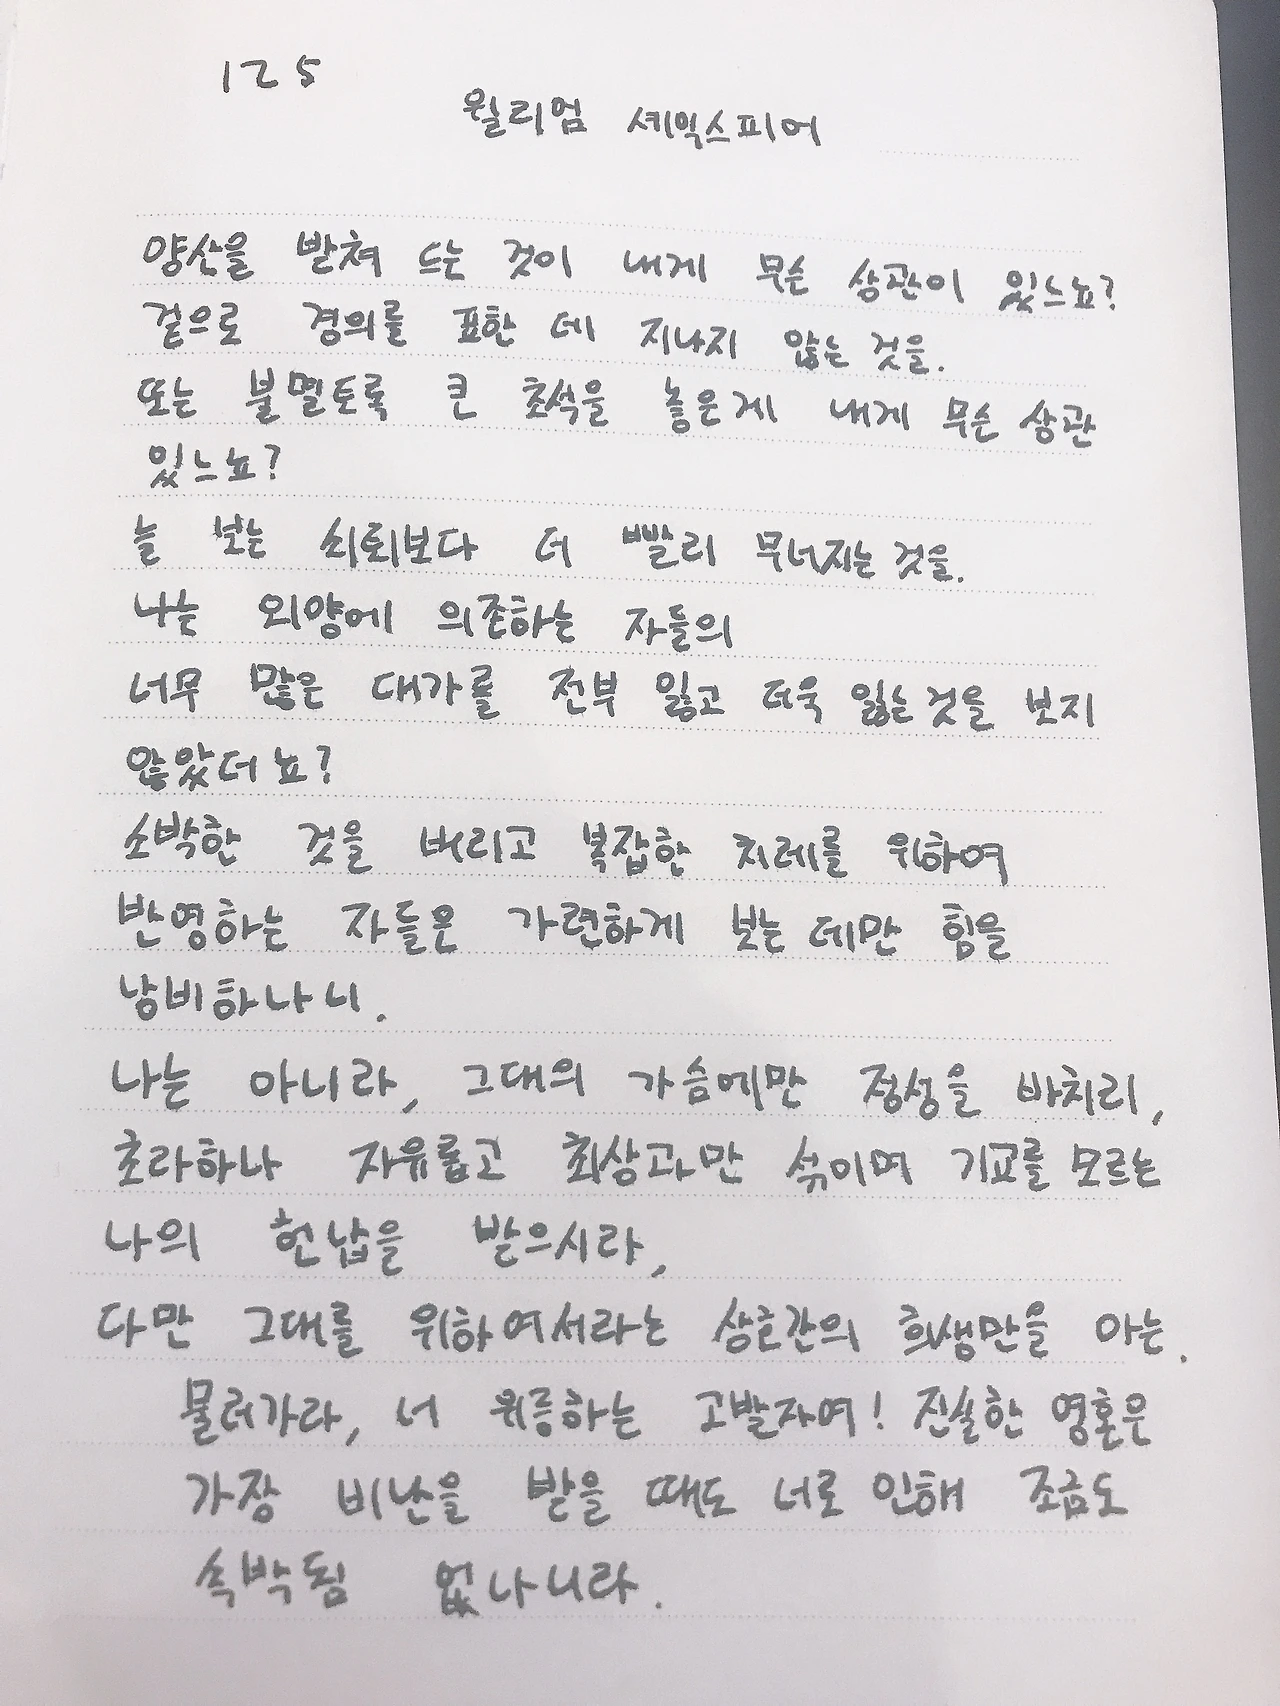 125
윌리엄 셰익스피어
양산을 받쳐 드는 것이 내게 무슨 상관이 있느뇨?
겉으로 경의를 표한 데 지나지 않는 것을.
또는 불멸토록 큰 초석을 놓은게 내게 무슨 상관
있느뇨?
늘 보는 쇠퇴보다 더 빨리 무너지는 것을.
나는 외양에 의존하는 자들의
너무 많은 대가를 전부 잃고 더욱 잃는 것을 보지
않았더뇨?
소박한 것을 버리고 복잡한 치레를 위하여
반영하는 자들은 가련하게 보는 데만 힘을
낭비하나니.
나는 아니라, 그대의 가슴에만 정성을 바치리,
초라하나 자유롭고 최상과만 섞이며 기교를 모르는
나의 헌납을 받으시라,
다만 그대를 위하여서라는 상호간의 희생만을 아는.
물러가라, 너 위증하는 고발자여! 진실한 영혼은
가장 비난을 받을 때도 너로 인해 조금도
속박됨 없나니라.